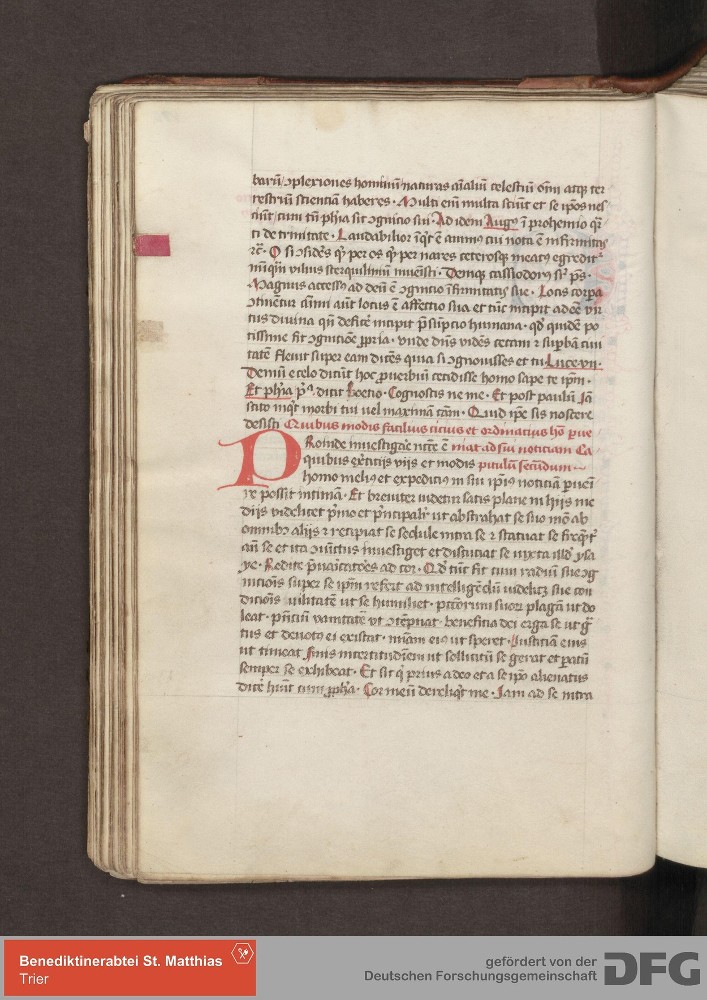 barū ↄplexiones hominū naturas aīaliū celestiū oīm atqꝫ ter
restriū scientiā haberes. Multi eī multa sciūt et se ipos nes
ciūt cum tn̄ phīa sit ↄgnicio sui. Ad idem Augꝰ ī prohemio qr̄
ti de trinitate. Laudabilior īqt ē animꝰ cui nota ē infirmitas
rc̄. O si ↄsideres qͥ per os qͥ per nares ceterosqꝫ meatꝰ egredit᷑
nūqm̄ viliꝰ sterquiliniū inuenisti. Deniqꝫ cassiodorꝰ sr̄ ps̄.
Magnus accessꝰ ad deū ē ↄgnicio īfirmitatis sue. Locis corpa
ↄtinent᷑ aīmi aūt locus ē affectio sua et tūc incipit adeē vir
tus diuina qn̄ deficit incipit p̄sūpcio humana. qd̓ quidē po
tissime fit ↄgnicōne ꝓpria. vnde dn̄s vidēs ceteram r suꝑbā ciui
tatē fleuit super eam dicēs quia si ↄgnouisses et tu Luce vii.
Demū e celo dicūt hoc ꝓuerbiū cecidisse homo sape te ipm̄.
Et phīa pª dicit Boecio. Cognostis ne me. Et post paulū Iā
scito inqt morbi tui vel maximā cām. Quid ipe sis nostere
desisti Quibus modis facilius cicius et ordinacius hō ꝑue
Roinde inuestigare nīte ē niat ad sui noticiam Ca
quibus exercitijs vijs et modis pitulū secūdum
homo melius et expedicius in sui ipius noticiā ꝑueīi
re possit intimā. Et breuiter videtur satis plane in hijs me
dijs videlicet p̄mo et p̄ncipalr ut abstrahat se suo mō ab
omnibꝫ alijs r recipiat se sedule intra se r statuat se freqͭ
an̄ se et ita ↄiūctus inuestiget et discuciat se iuxta illd̓ ysa
ye. Redite p̄uaricatores ad cor. Qd̓ tūc fit cum radiū sue ↄg
nicionis super se ipm̄ refert ad intelligēdū videlicꝫ sue con
dicōis vilitatē ut se humiliet. pctōrum suoꝝ plagā ut do
leat. pn̄ciū vanitatē vt ↄtēpnat. beneficia dei erga se ut gͣ
tus et deuotꝰ ei existat. mīam eiꝰ ut speret. Iusticiā eius
ut timeat finis incertitudinem ut sollicitū se gerat et patū
semper se exhibeat. Et sic qͥ prius a deo et a se ipo alienatus
dicē hūit cum ꝓpha. Cor meū dereliqt me. Iam ad se intra
Benediktinerabtei St. Matthias
Trier
gefördert von der
Deutschen Forschungsgemeinschaft
DFG